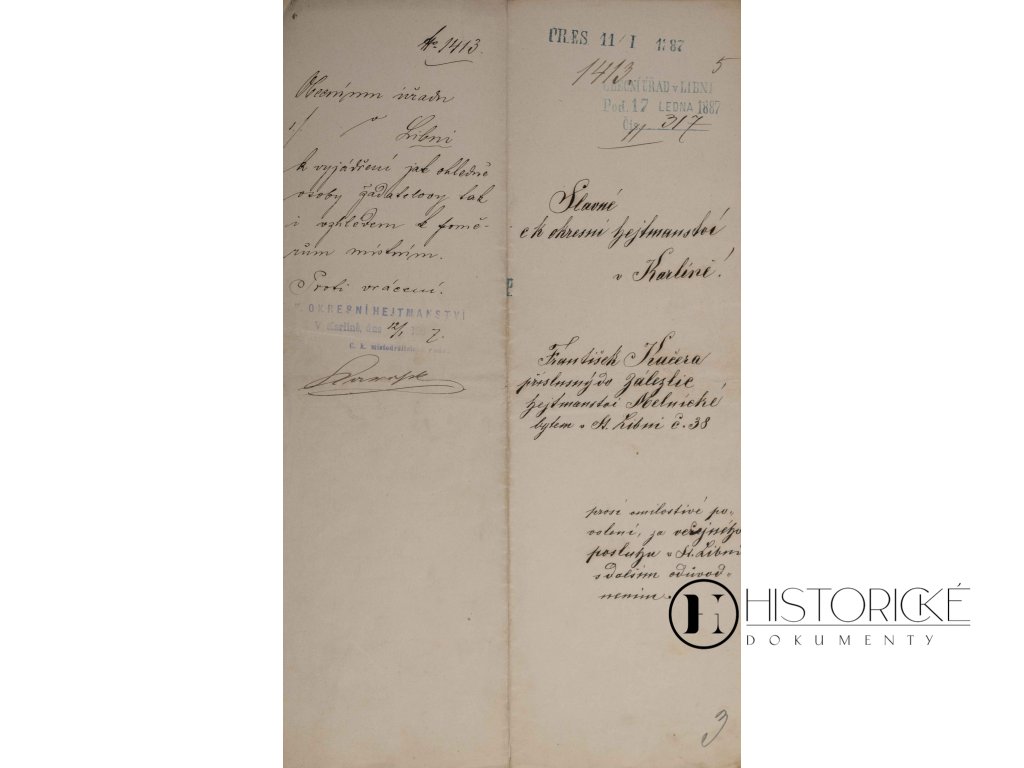 № 1413.
Obecnímu úřadu
1/ v
Libni
k vyjádření jak ohledně
osoby žadatelovy tak
i vzhledem k pomě-
rům místním.
Proti vrácení.
K. OKRESNÍ HEJTMANSTVÍ
V Karlíně, dne 12/1 1887.
C. k. místodržitelský rada:
PRES. 11/I 1887
1413. 5
OBECNÍ ÚŘAD v LIBNI
Pod. 17 LEDNA 1887
Čís. 317
Slavné
c k okresní hejtmanství
v Karlíně!
František Kučera
příslušný do Zálezlic
hejtmanství Mělnické
bytem v St. Libni č. 38
prosí o milostivé po-
volení, za veřejného
posluhu v St. Libni
s dalším odůvod-
něním.
3
HISTORICKÉ
DOKUMENTY